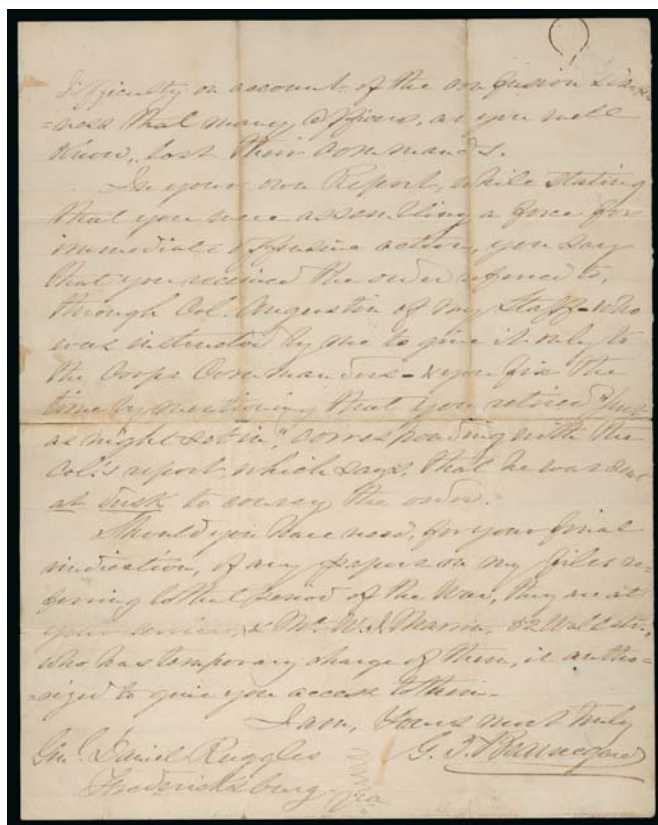 difficulty on account of the confusion & dark=
=ness that many Officers, as you well
know, lost their commands.
In your own Report, while stating
that you were assembling a force for
immediate offensive action, you say
that you received the order refered to,
through Col. Augustin of my Staff - who
was instructed by me to give it only to
the Corps Commanders - & you fix the
time by mentioning that you retired "just
as night set in", corresponding with the
Col.'s report, which says, that he was sent
at dusk to convey the order.
Should you have need, for your final
vindication, of any papers on my files re=
ferring to that period of the War, they are at
your service, & Mr. W. J. 52 Wall Str.,
who has temporary charge of them, is autho=
=rized to give you access to them.
I am, Yours most truly
G. T. Beauregard
Gnl. Daniel Ruggles
Fredericksburg
Va